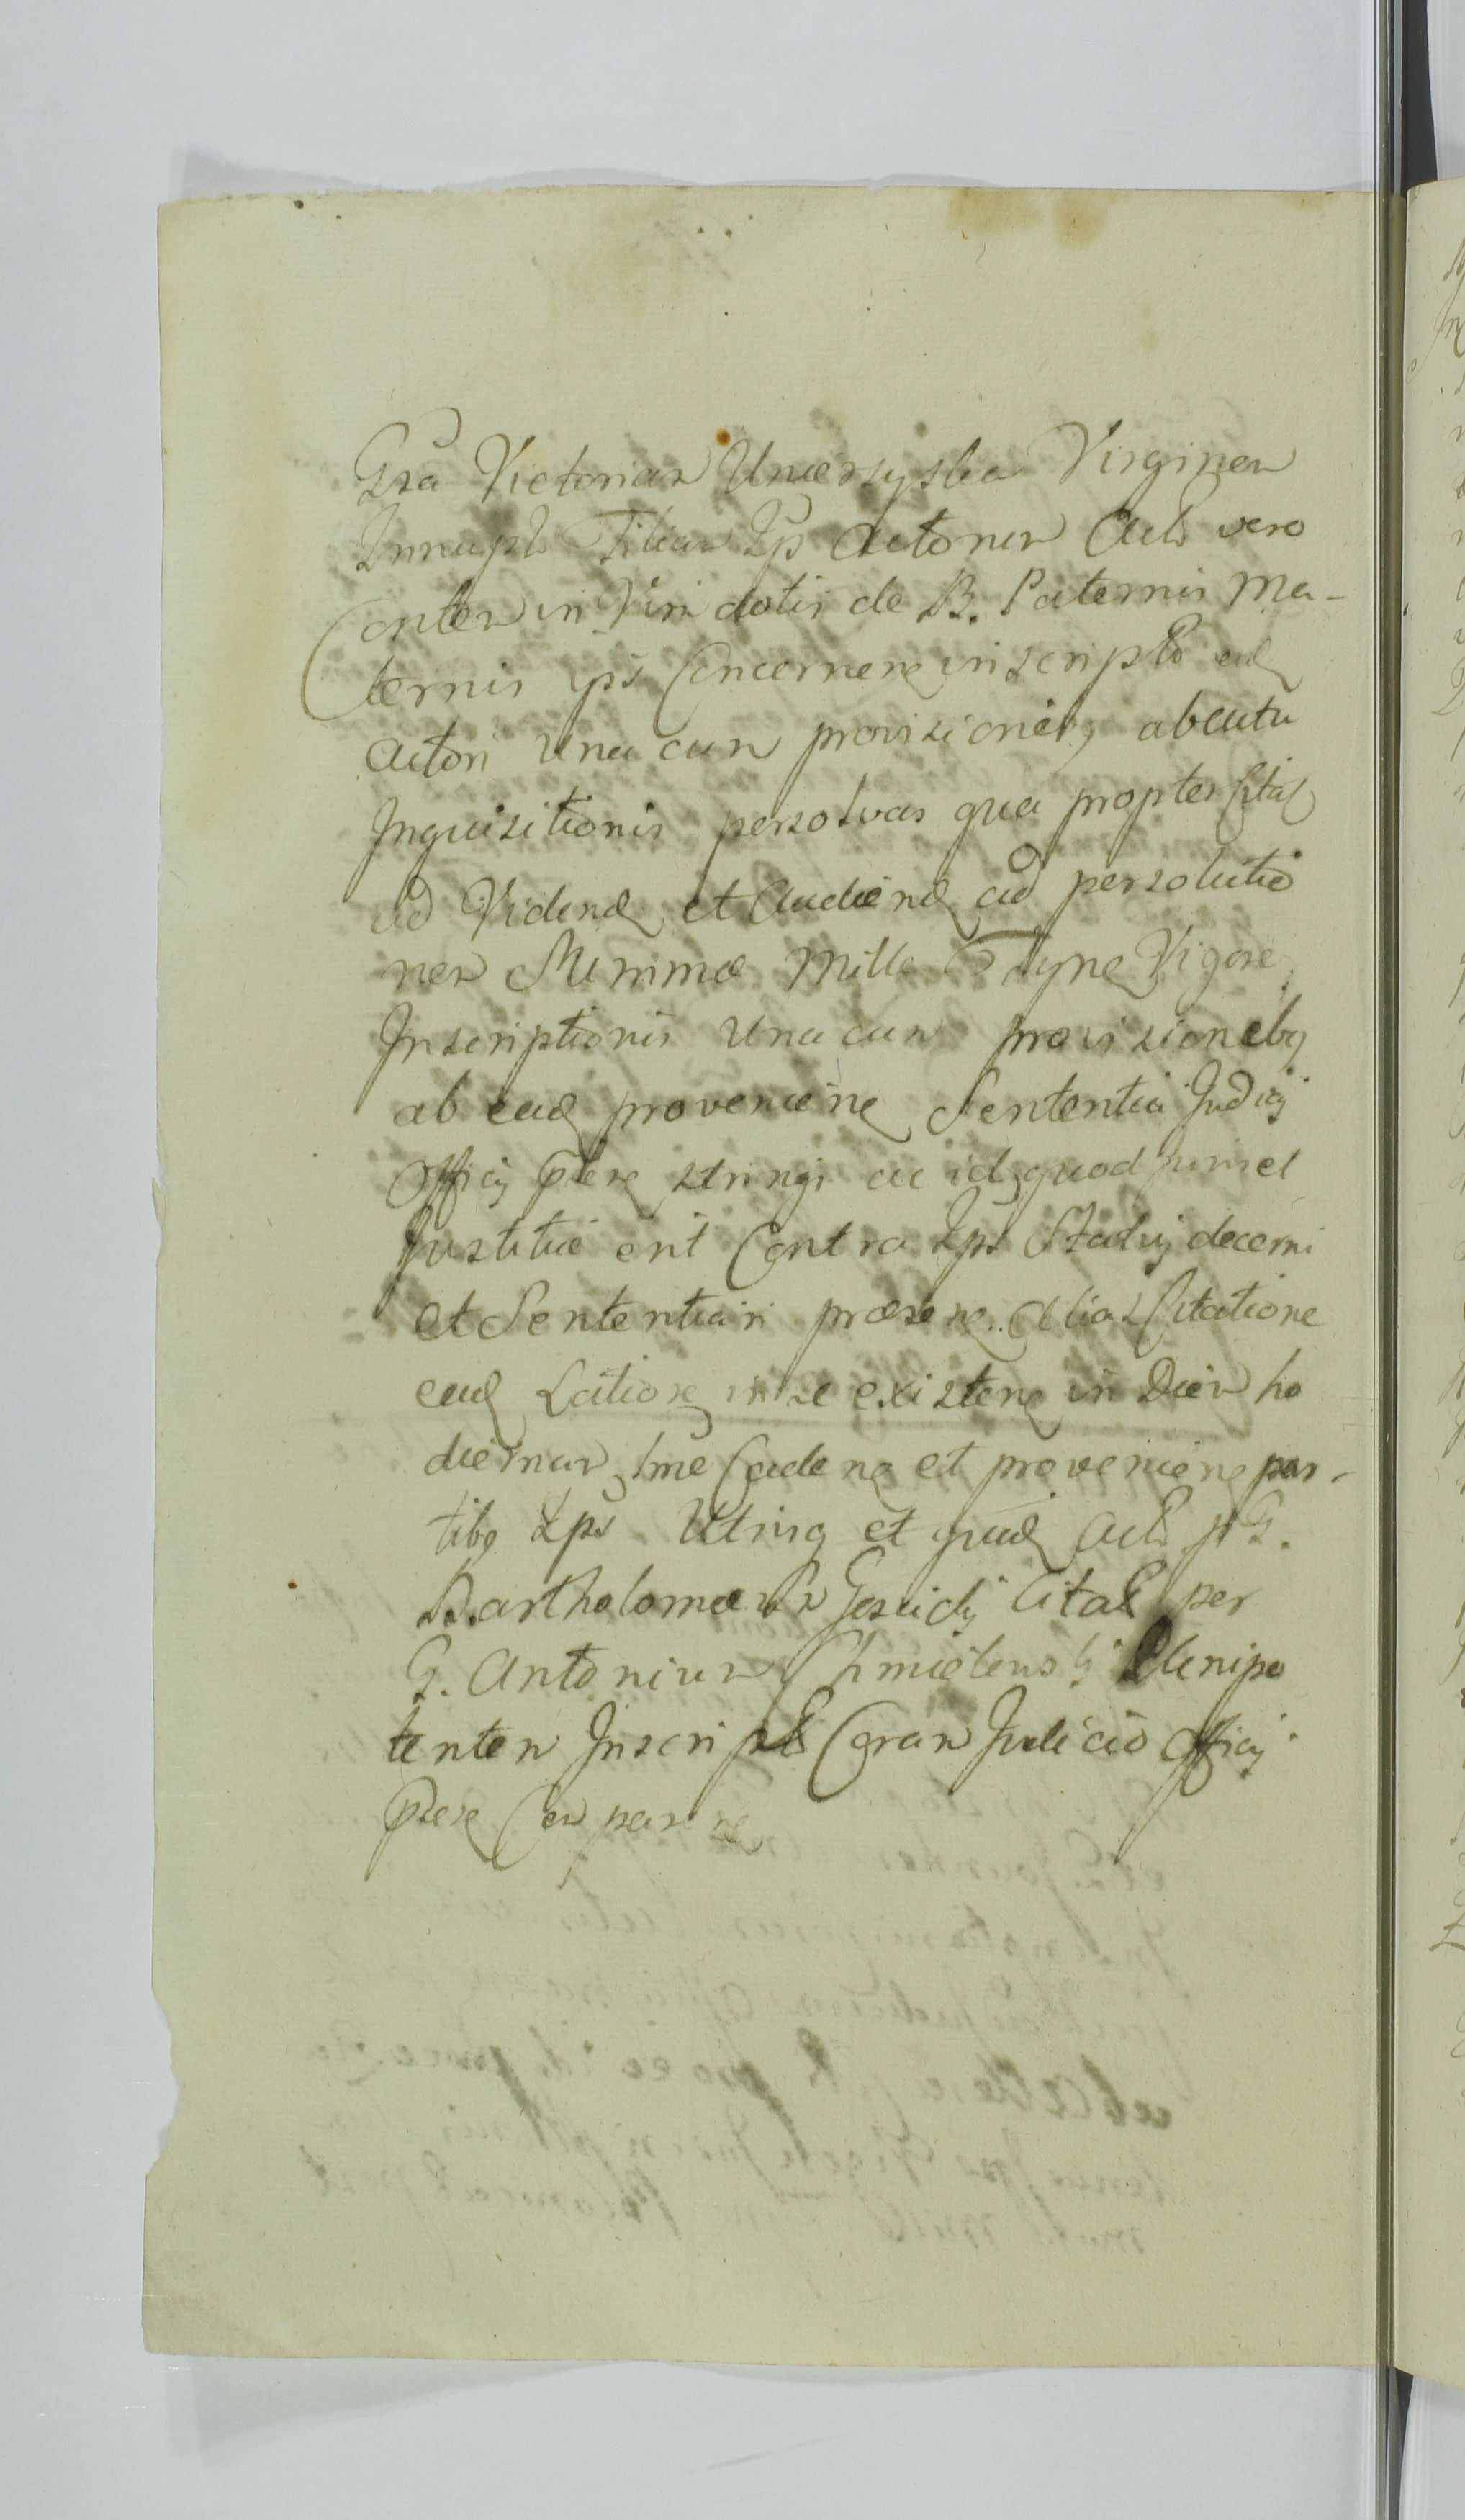 Gsa Victorian Unierzyska Virginem
Innupt Filiam Ips Actorem Act vero
contem in Vim dotis de B. Paternis Ma-
ternis ips Concernen inscript ead
Actori Una cum provisionibq abactu
Inquisitionis persolvas qua propter Citat
ad Videnď et Audienď ad persolutio
nem Summæ Mille Tynf Vigore
Inscriptionis Una cum provisionebq
ab eadď provenien Sententia Judicij
Officij ptis stringi ac id quod juris et
Justitiæ erit Contra Ips Statuj decerni
et Sententiari præsen. Alias Citatione
eadď Latiore in se existen in Diem ho
diernam Caden et provenien par-
tibq Ips Utrinq et quidď Act p G.
Bartholomæum Citat per
G. Antonium Chmielewski Plenipo
tentem Inscript Coram Judicio Officij
ptis Comparen